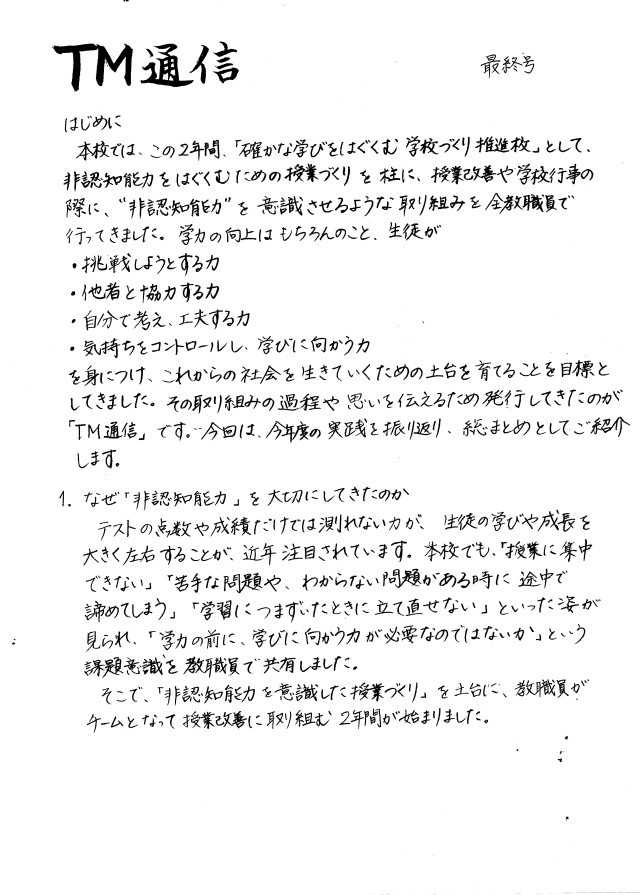 TM通信
最終号
はじめに
本校では、この2年間、「確かな学びをはぐくむ学校づくり推進校」として、
非認知能力をはぐくむための授業づくりを柱に、授業改善や学校行事の
際に、“非認知能力”を意識させるような取り組みを全教職員で
行ってきました。学力の向上はもちろんのこと、生徒が
・挑戦しようとする力
・他者と協力する力
・自分で考え、工夫する力
・気持ちをコントロールし、学びに向かう力
を身につけ、これからの社会を生きていくための土台を育てることを目標と
してきました。その取り組みの過程や思いを伝えるため発行してきたのが
「TM通信」です。今回は、今年度の実践を振り返り、総まとめとしてご紹介
します。
1. なぜ「非認知能力」を大切にしてきたのか
テストの点数や成績だけでは測れない力が、生徒の学びや成長を
大きく左右することが、近年注目されています。本校でも、「授業に集中
できない」「苦手な問題や、わからない問題がある時に途中で
諦めてしまう」「学習につまずいたときに立て直せない」といった姿が
見られ、「学力の前に、学びに向かう力が必要なのではないか」という
課題意識を教職員で共有しました。
そこで、「非認知能力を意識した授業づくり」を土台に、教職員が
チームとなって授業改善に取り組む2年間が始まりました。